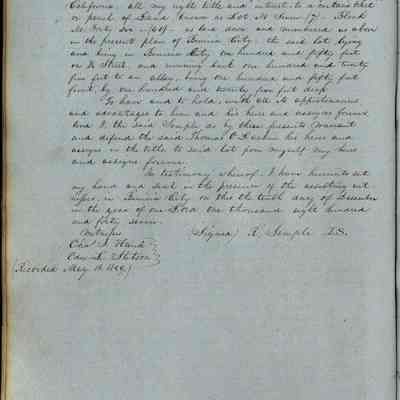 California, all my right title and interest, to a certain tract
or parcel of Land, known as Lot No Seven (7). Block
No Forty two - (42) - as laid down and numbered as above
in the present plan of Benicia City; the said lot lying
and being in Benicia City, one hundred and fifty feet
on H Street, and running back one hundred and twenty
five feet to an alley, being one hundred and fifty feet
front, by one hundred and twenty five feet deep
To have and to hold, with all its appurtenances
and advantages to him and his heirs and assigns forever
And I, the said Semple, do by these presents, warrant
and defend the said Thomas O. Larkin his heirs and
assigns in the title to said lot from myself my heirs
and assigns forever.
In testimony whereof, I have hereunto set
my hand and seal in the presence of the assisting wit
nesses, in Benicia City on this the tenth day of December
in the year of our Lord one thousand eight hundred
and forty seven.
Witness
(Signed) R. Semple L.S.
Chas. J. Hand
Stetson
(Recorded May